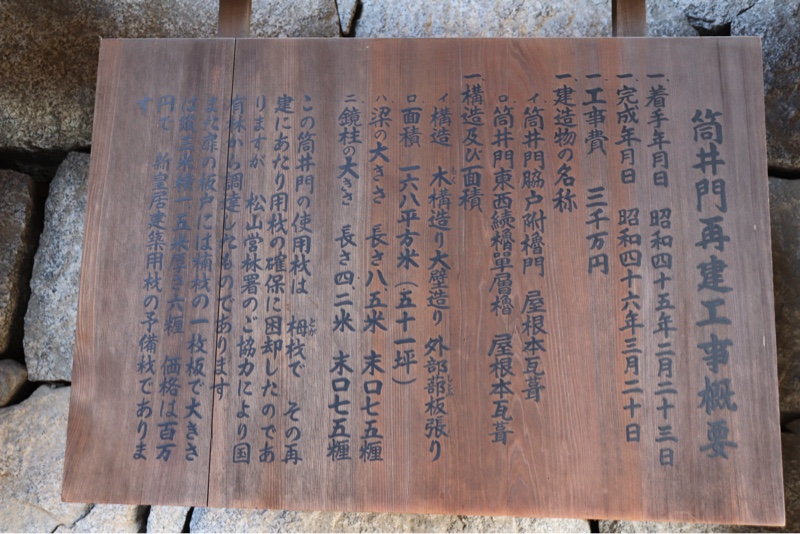 筒井門再建工事概要
一、着手年月日 昭和四十五年二月二十三日
一、完成年月日 昭和四十六年三月二十日
一、工事費 三千万円
一、建造物の名称
イ 筒井門脇戸附櫓門 屋根本瓦葺
ロ 筒井門東西続櫓單層櫓 屋根本瓦葺
一、構造及び面積
イ 構造 木構造り大壁造り 外部蔀板張り
ロ 面積 一六八平方米(五十一坪)
ハ 梁の大きさ 長さ八、五米 末口七五糎
ニ 鏡柱の大きさ 長さ四、二米 末口七五糎
この筒井門の使用材は 栂材で その再
建にあたり用材の確保に困却したのであ
りますが 松山営林署のご協力により国
有林から調達したものであります
また扉の板戸には楠材の一枚板で大きさ
は縦三米横一、五米厚さ六糎 価格は百万
円で 新皇居建築用材の予備材でありま
す